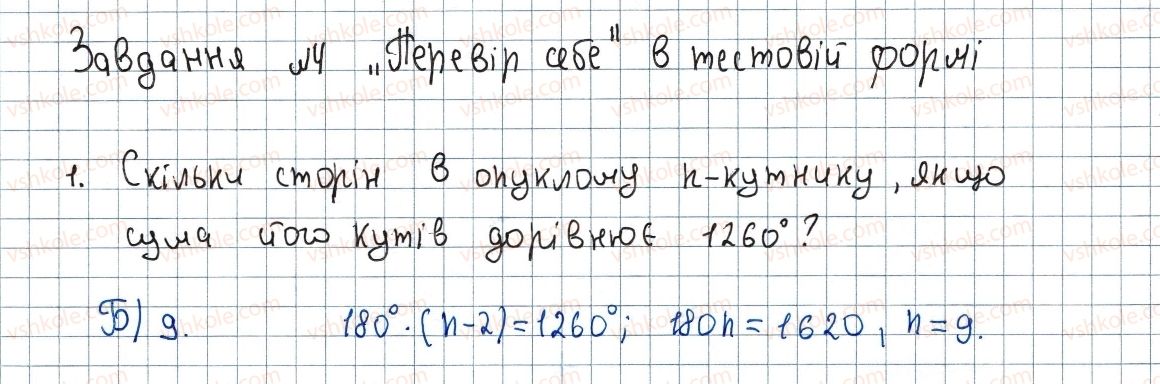 Завдання №4 „Перевір себе" в тестовій формі
1. Скільки сторін в опуклому n-кутнику, якщо
сума його кутів дорівнює 1260°?
Б) 9. 180°·(n-2)=1260°; 180n=1620, n=9.